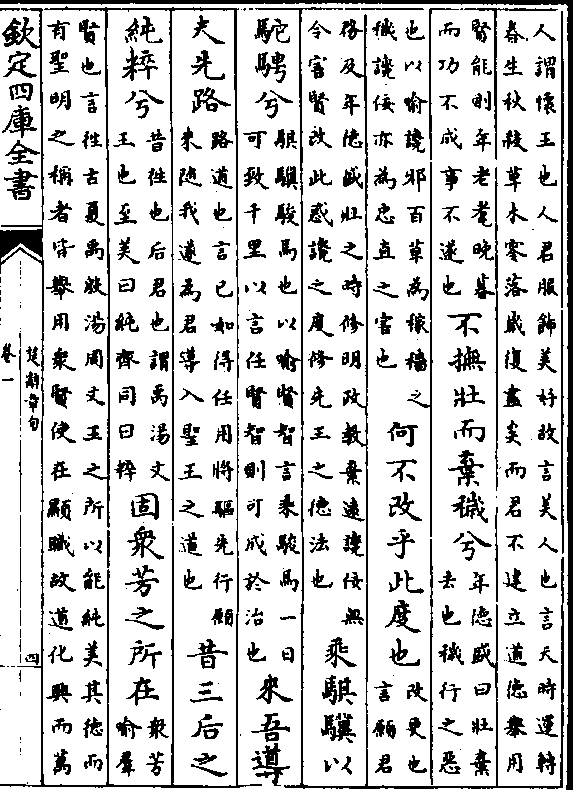 人謂懷王也人君服飾美好故言美人也言天時運轉
春生秋殺草木零落歲復盡矣而君不建立道德舉用
賢能則年老耄晚暮
而功不成事不遂也
不撫壯而棄穢兮
年德盛曰壯棄
去也穢行之惡
也以喻讒邪百草為稼穡之
穢讒佞亦為忠直之害也
何不改乎此度也
改更也
言願君
務及年德盛壯之時修明政教棄遠讒佞無
令害賢改此惑讒之度修先王之德法也
乘騏驥以
駝騁兮
騏驥駿馬也以喻賢智言乘駿馬一日
可致千里以言任賢智則可成於治也
來吾導
夫先路
路道也言己如得任用將驅先行願
來隨我遂為君導入聖王之道也
昔三后之
純粹兮
昔往也后君也謂禹湯文
王也至美曰純齊同曰粹
固衆芳之所在
衆芳
喻羣
賢也言往古夏禹殷湯周文王之所以能純美其德而
有聖明之稱者皆舉用衆賢使在顯職故道化興而萬
欽定四庫全書
楚辭章句
卷一
四